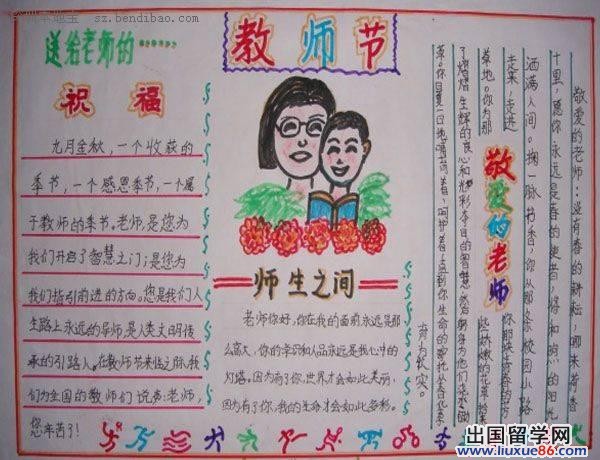 sz.bendibao.com
送给老师的……
祝福
九月金秋，一个收获的
季节，一个感恩季节，一个属
于教师的季节。老师，是您为
我们开启了智慧之门；是您为
我们指引前进的方向。您是我们人
生路上永远的导师，是人类文明传
承的引路人。在教师节来临之际，我
们为全国的教师们说声：老师，
您辛苦了！
教师节
师生之间
老师你好，你在我的面前永远是那
么高大，你的学识和人品永远是我心中的
灯塔。因为有了你，世界才会如此美丽，
因为有了你，我的生命才会如此多彩。
敬爱的老师
敬爱的老师：没有春的耕耘，哪来有香
十里，愿你永远是春的使
洒满人间。掬一脉书香，你从那条校园小路
走来，走进
草地。你为那
奋为长实。
出国留学网
www.liuxue86.com